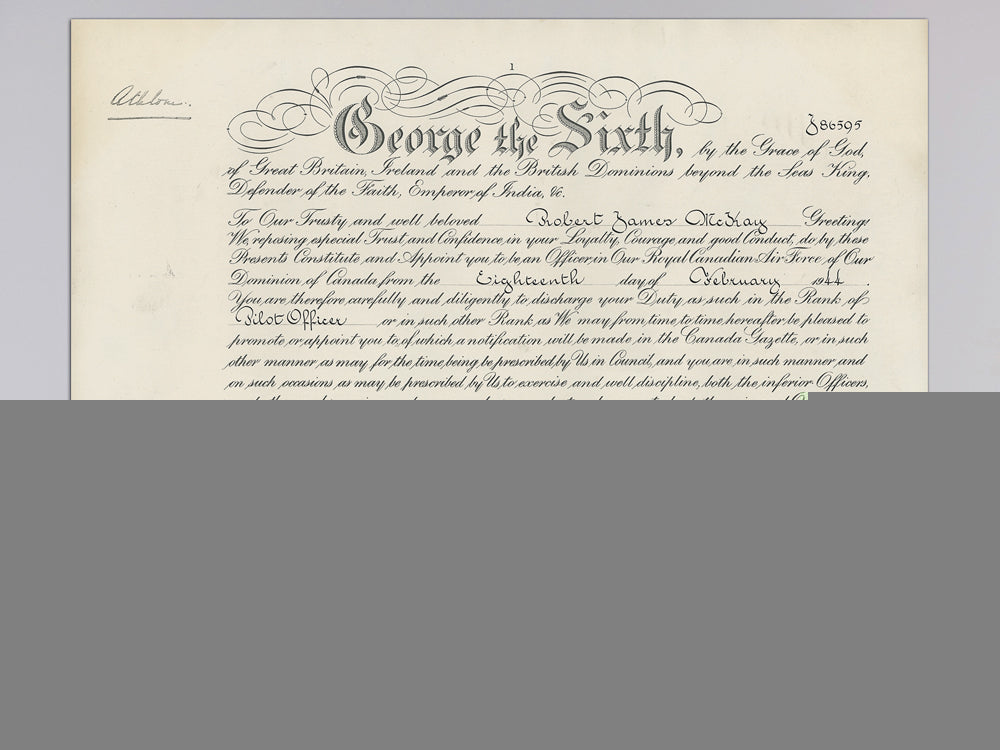 1
Athlone.
J86595
George the Sixth, by the Grace of God,
of Great Britain, Ireland and the British Dominions beyond the Seas King,
Defender of the Faith, Emperor of India, &c.
To Our Trusty and well beloved Robert James McKay Greeting:
We, reposing especial Trust and Confidence in your Loyalty, Courage and good Conduct, do, by these
Presents Constitute and Appoint you to be an Officer in Our Royal Canadian Air Force of Our
Dominion of Canada from the Eighteenth day of February 1944.
You are therefore carefully and diligently to discharge your Duty as such in the Rank of
Pilot Officer or in such other Rank as We may from time to time hereafter be pleased to
promote or appoint you to, of which a notification will be made in the Canada Gazette, or in such
other manner as may for the time being be prescribed by Us in Council, and you are in such manner and
on such occasions as may be prescribed by Us, to exercise and well discipline both the inferior Officers,